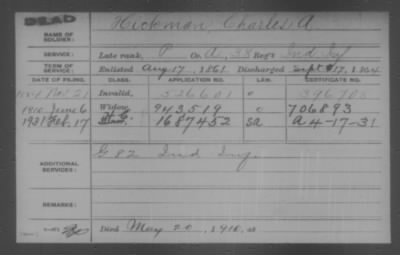 DEAD
NAME OF SOLDIER: Hickman, Charles A.
SERVICE: Late rank, P Co. A, 38 Reg't Ind. Inf
TERM OF SERVICE: Enlisted Aug 17, 1861. Discharged Sept 17, 1864
DATE OF FILING. CLASS. APPLICATION NO. LAW. CERTIFICATE NO.
21 Invalid, 526601 "
1910 June 6 Widow, 943,519 " 706893
1931 Feb. 17 1687452 SA A 4-17-31
ADDITIONAL SERVICES: G 82 Ind Inf.
REMARKS:
Died May 20, 1910, at